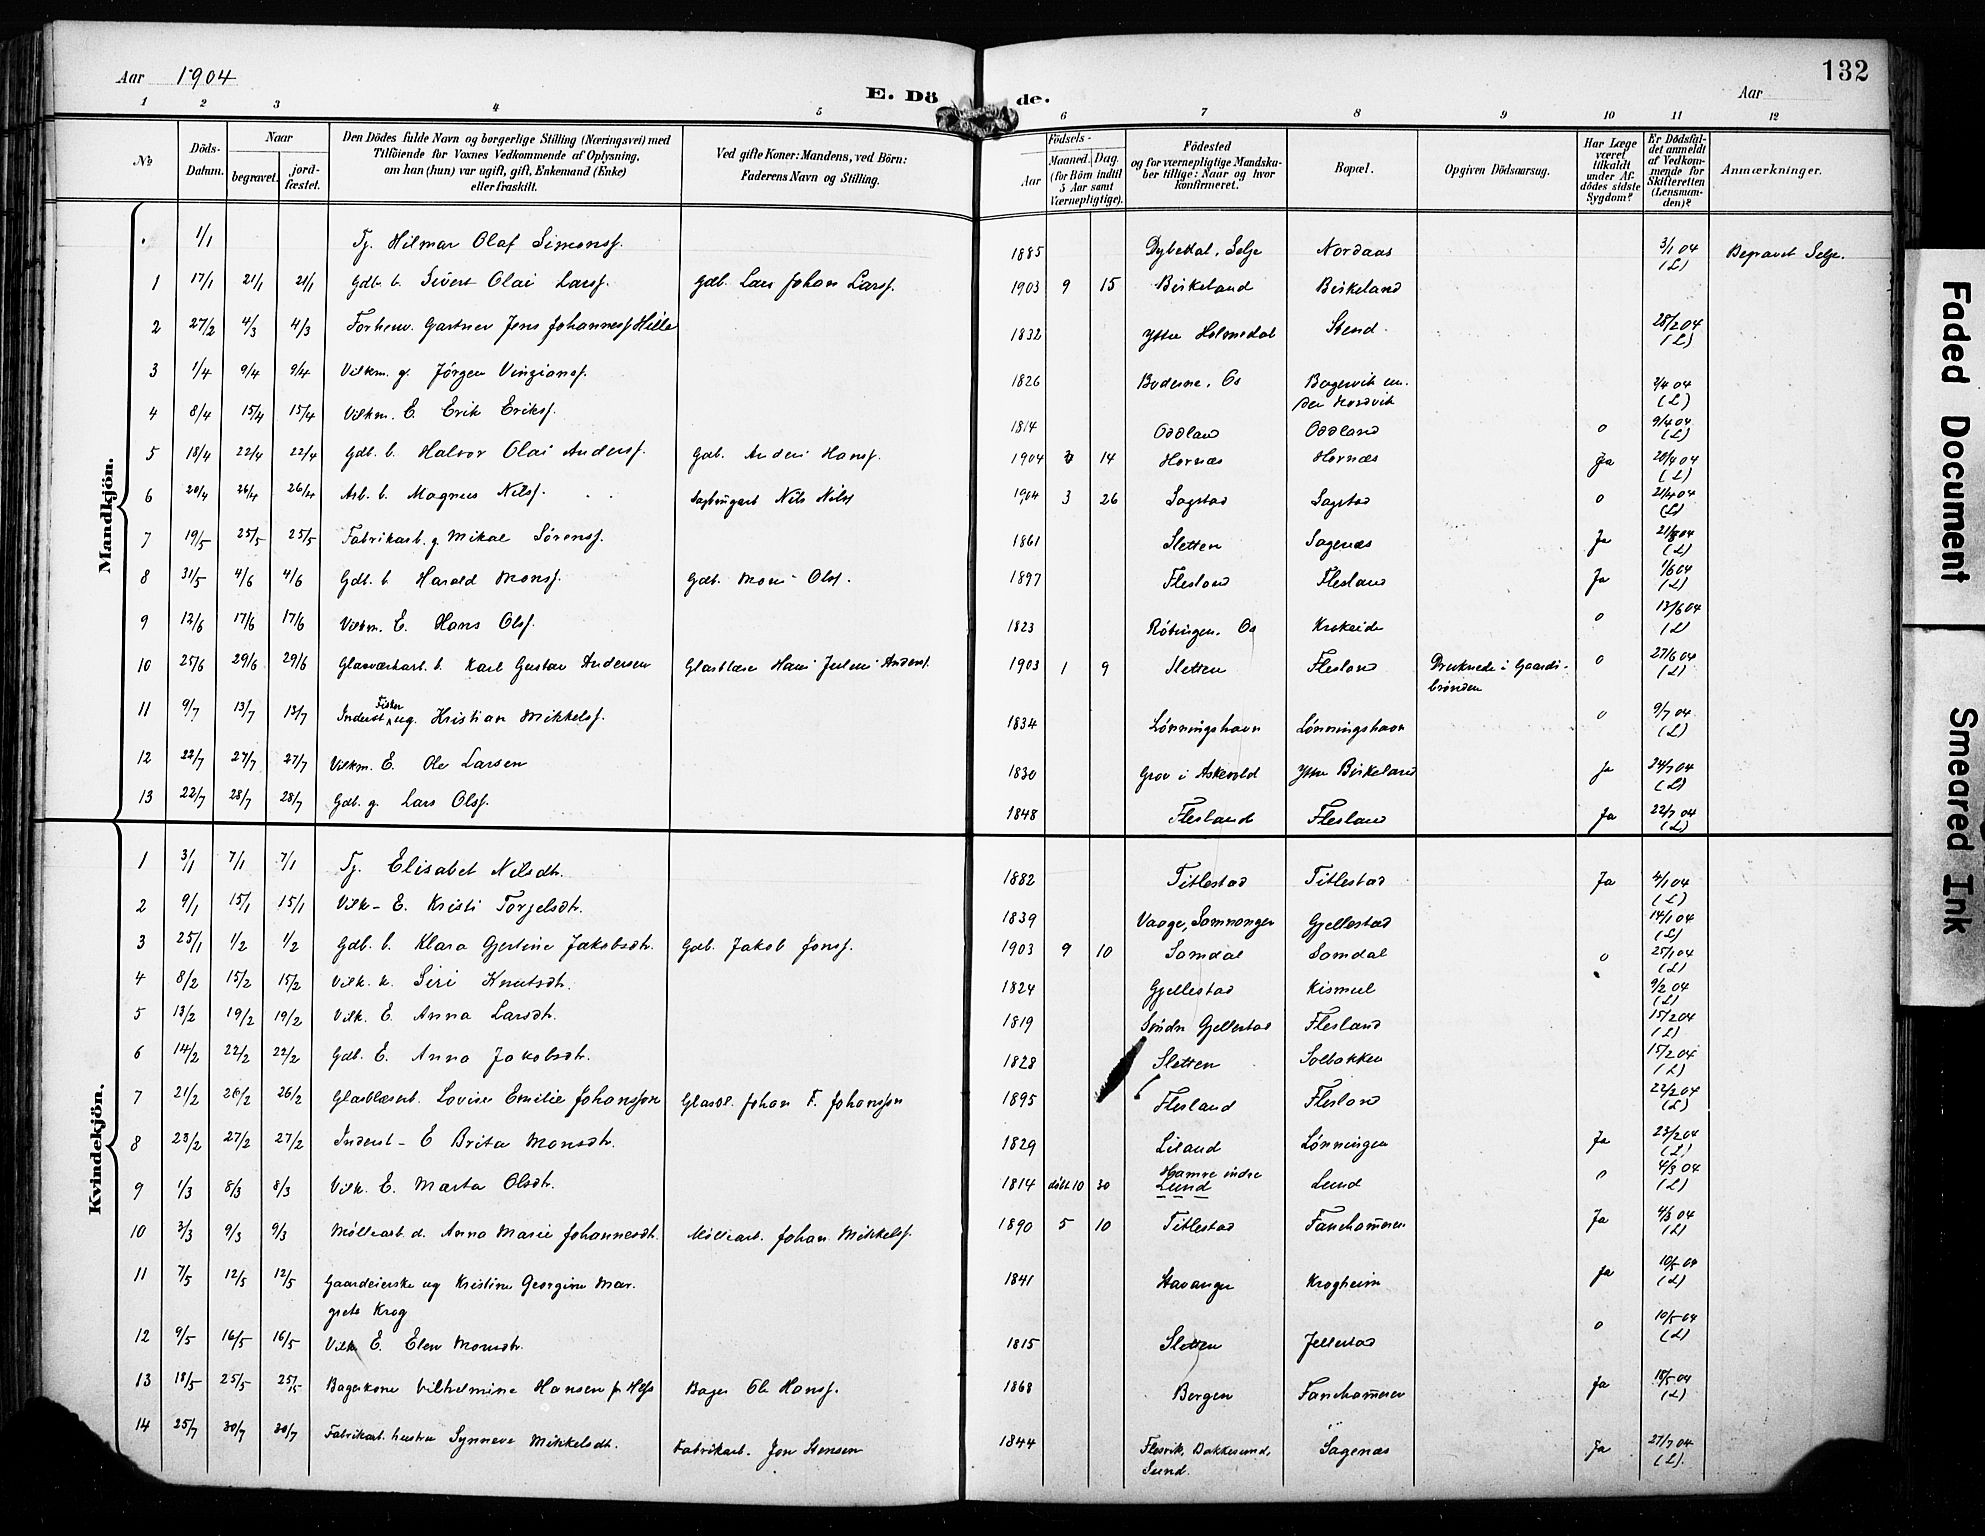 Aar 1904
E. Dö de.
Aar
132
1 2 3 4 5 6 7 8 9 10 11 12
No
Döds-Datum.
Naar
begravet.
jord-fæstet.
Den Dödes fulde Navn og borgerlige Stilling (Næringsvei) med
Tilföiende for Voxnes Vedkommende af Oplysning,
om han (hun) var ugift, gift, Enkemand (Enke)
eller fraskilt.
Ved gifte Koner: Mandens, ved Börn:
Faderens Navn og Stilling.
Födsels-
Aar
Maaned. Dag.
(for Börn indtil
5 Aar samt
Værnepligtige).
Födested
og for værnepligtige Mandska-
ber tillige: Naar og hvor
konfirmeret.
Bopæl.
Opgiven Dödsaarsag.
Har Læge
været
tilkaldt
under Af-
dödes sidste
Sygdom?
Er Dødsfal-
det anmeldt
af Vedkom-
mende for
Skifteretten
(Lensman-
den)?
Anmærkninger.
Mandkjön.
1/1 Tj. Hilmar Olaf Simonsf. 1885 Dybedal, Selje Nordaas 3/1 04 (L) Begravet Selje.
1 17/1 21/1 21/1 Gdb. b. Sivert Olai Larsf. Gdb. Lars Johan Larsf. 1903 9 15 Birkeland Birkeland
2 27/2 4/3 4/3 Forhenv. Gartner Jens Johannesf. Hille 1832 Yttre Holmedal Stend. 28/2 04 (L)
3 1/4 9/4 9/4 Vilkm. g. Jörgen Vinziansf. 1826 Os 2/4 04 (L)
4 8/4 15/4 15/4 Vilkm. E. Erik Eriksf. 1814 Oddland Oddland o 9/4 04 (L)
5 18/4 22/4 22/4 Gdb. b. Halvor Olai Andersf. Gdb. Anders Hansf. 1904 14 Hornæs Hornæs Ja 20/4 04 (L)
6 20/4 26/4 26/4 Arb. b. Magnus Nilsf. Nils Nilsf 1904 3 26 Sagstad Sagstad o 21/4 04 (L)
7 19/5 25/5 25/5 Fabrikarb. g. Mikal Sørensf. 1861 Sletten Sagenæs Ja 21/5 04 (L)
8 31/5 4/6 4/6 Gdb. b. Harald Monsf. Gdb. Mons Olsf. 1897 Flesland Flesland Ja 1/6 04 (L)
9 12/6 17/6 17/6 Vilkm. E. Hans Olsf. 1823 Røtingen. Os Krokeide o 13/6 04 (L)
10 25/6 29/6 29/6 Glasværkarb. b. Karl Gustav Andersen Glasblæser Hans Julius Andersf. 1903 1 9 Sletten Flesland Druknede i Gaards-
brønden o 27/6 04 (L)
11 9/7 13/7 13/7 Inderst Fisker ug. Kristian Mikkelsf. 1834 Lønningshavn Lønningshavn o 9/7 04 (L)
12 22/7 27/7 27/7 Vilkm. E. Ole Larsen 1830 Grov i Askevold Yttre Birkeland Ja 24/7 04 (L)
13 22/7 28/7 28/7 Gdb. g. Lars Olsf. 1848 Flesland Flesland Ja 22/7 04 (L)
Kvindekjön.
1 3/1 7/1 7/1 Tj. Elisabet Nilsdtr. 1882 Titlestad Titlestad Ja 4/1 04 (L)
2 9/1 15/1 15/1 Vilk- E. Kristi Torjelsdtr. 1839 Vaage, Samnanger Gjellestad 14/1 04 (L)
3 25/1 1/2 1/2 Gdb. b. Klara Gjertine Jakobsdtr. Gdb. Jakob Jonsf. 1903 9 10 Samdal Samdal o 25/1 04 (L)
4 8/2 15/2 15/2 Vilk. k. Siri Knutsdtr. 1824 Gjellestad Kismul 9/2 04 (L)
5 13/2 19/2 19/2 Vilk. E. Anna Larsdtr. 1819 Søndr Gjellestad Flesland 15/2 04 (L)
6 14/2 22/2 22/2 Gdb. E. Anna Jakobsdtr. 1828 Sletten Solbakken 15/2 04 (L)
7 21/2 26/2 26/2 Glasblæserb. Lovise Emilie Johansson Glasbl. Johan F. Johansson 1895 Flesland Flesland 22/2 04 (L)
8 23/2 27/2 27/2 Inderst- E Brita Monsdtr. 1829 Liland Lønningen Ja 23/2 04 (L)
9 1/3 8/3 8/3 Vilk. E. Marta Olsdtr. 1814 døbt 10 30 Hamre indre
Lund Lund o 4/3 04 (L)
10 3/3 9/3 9/3 Møllearb. d. Anna Marie Johannesdtr. Møllearb. Johan Mikkelsf. 1890 5 10 Titlestad Fanehammeren Ja 4/3 04 (L)
11 7/5 12/5 12/5 Gaardeierske ug Kristine Georgine Mar-
grete Krog 1841 Stavanger Krogheim Ja 10/5 04 (L)
12 9/5 16/5 16/5 Vilk E. Elen Monsdtr. 1815 Sletten Jellestad o 10/5 04 (L)
13 18/5 25/5 25/5 Bagerkone Vilhelmine Hansen f. Hess Bager Ole Hansf. 1868 Bergen Fanehammeren Ja 18/5 04 (L)
14 25/7 30/7 30/7 Fabrikarb. hustru Synneve Mikkelsdtr. Fabrikarb. Jon Stensen 1844 Flesvik, Bakkesund,
Sund. Sagenæs Ja 27/7 04 (L).
Faded Document
Smeared Ink